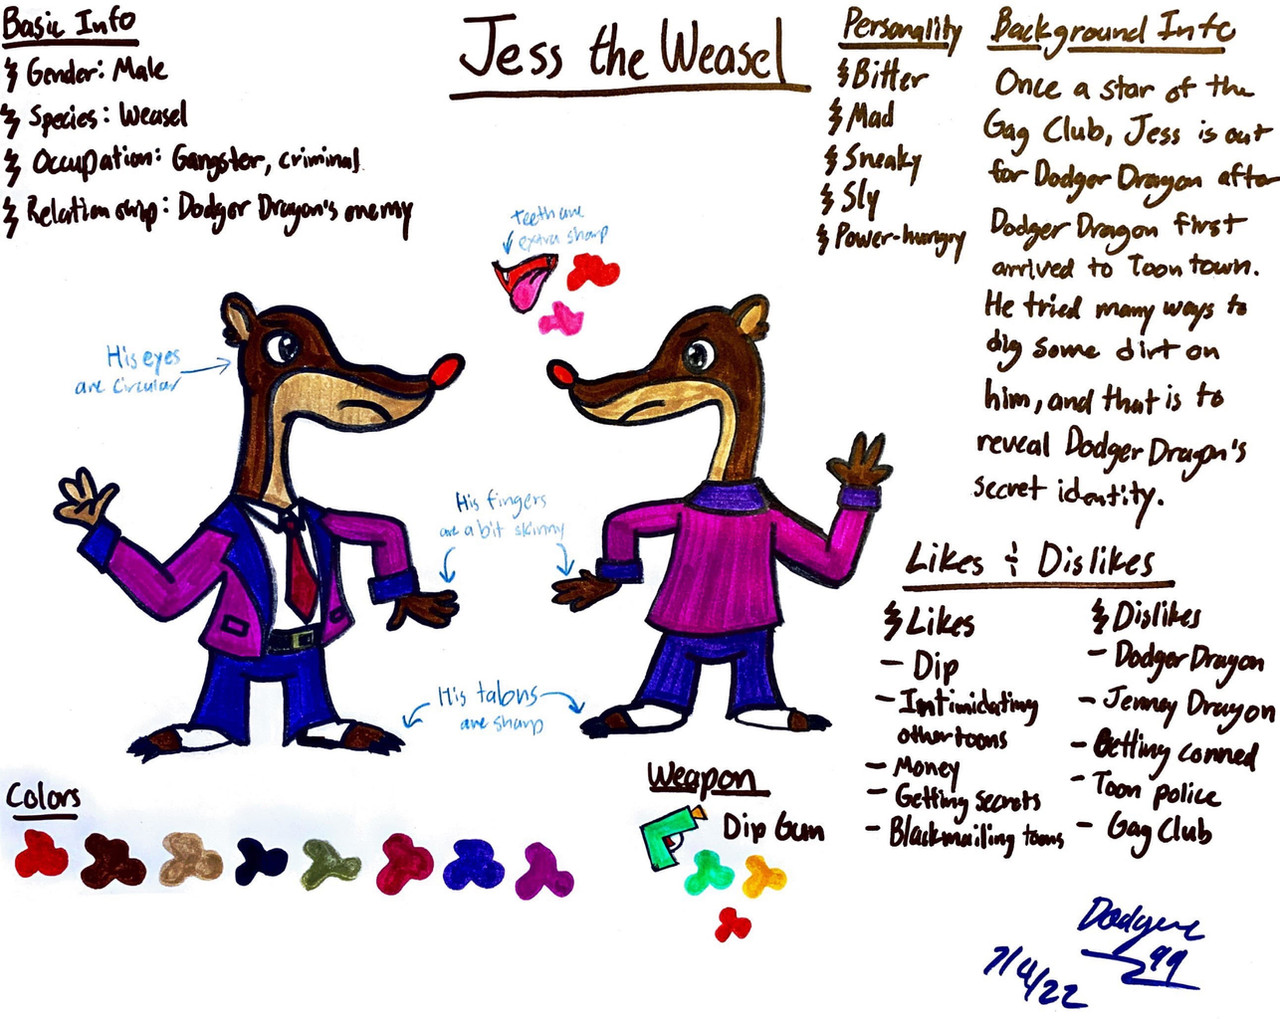 Jess the Weasel
Basic Info
Gender: Male
Species: Weasel
Occupation: Gangster, criminal
Relationship: Dodger Dragon's enemy
Personality
Bitter
Mad
Sneaky
Sly
Power-hungry
Background Info
Once a star of the
Gag Club, Jess is out
for Dodger Dragon after
Dodger Dragon first
arrived to Toontown.
He tried many ways to
dig some dirt on
him, and that is to
reveal Dodger Dragon's
secret identity.
Teeth are
extra sharp
His eyes
are circular
His fingers
are a bit skinny
His talons
are sharp
Likes & Dislikes
Likes
- Dip
- Intimidating
other toons
- Money
- Getting secrets
- Blackmailing toons
Dislikes
- Dodger Dragon
- Jenney Dragon
- Getting conned
- Toon police
- Gag Club
Colors
Weapon
Dip Gun
99
7/4/22